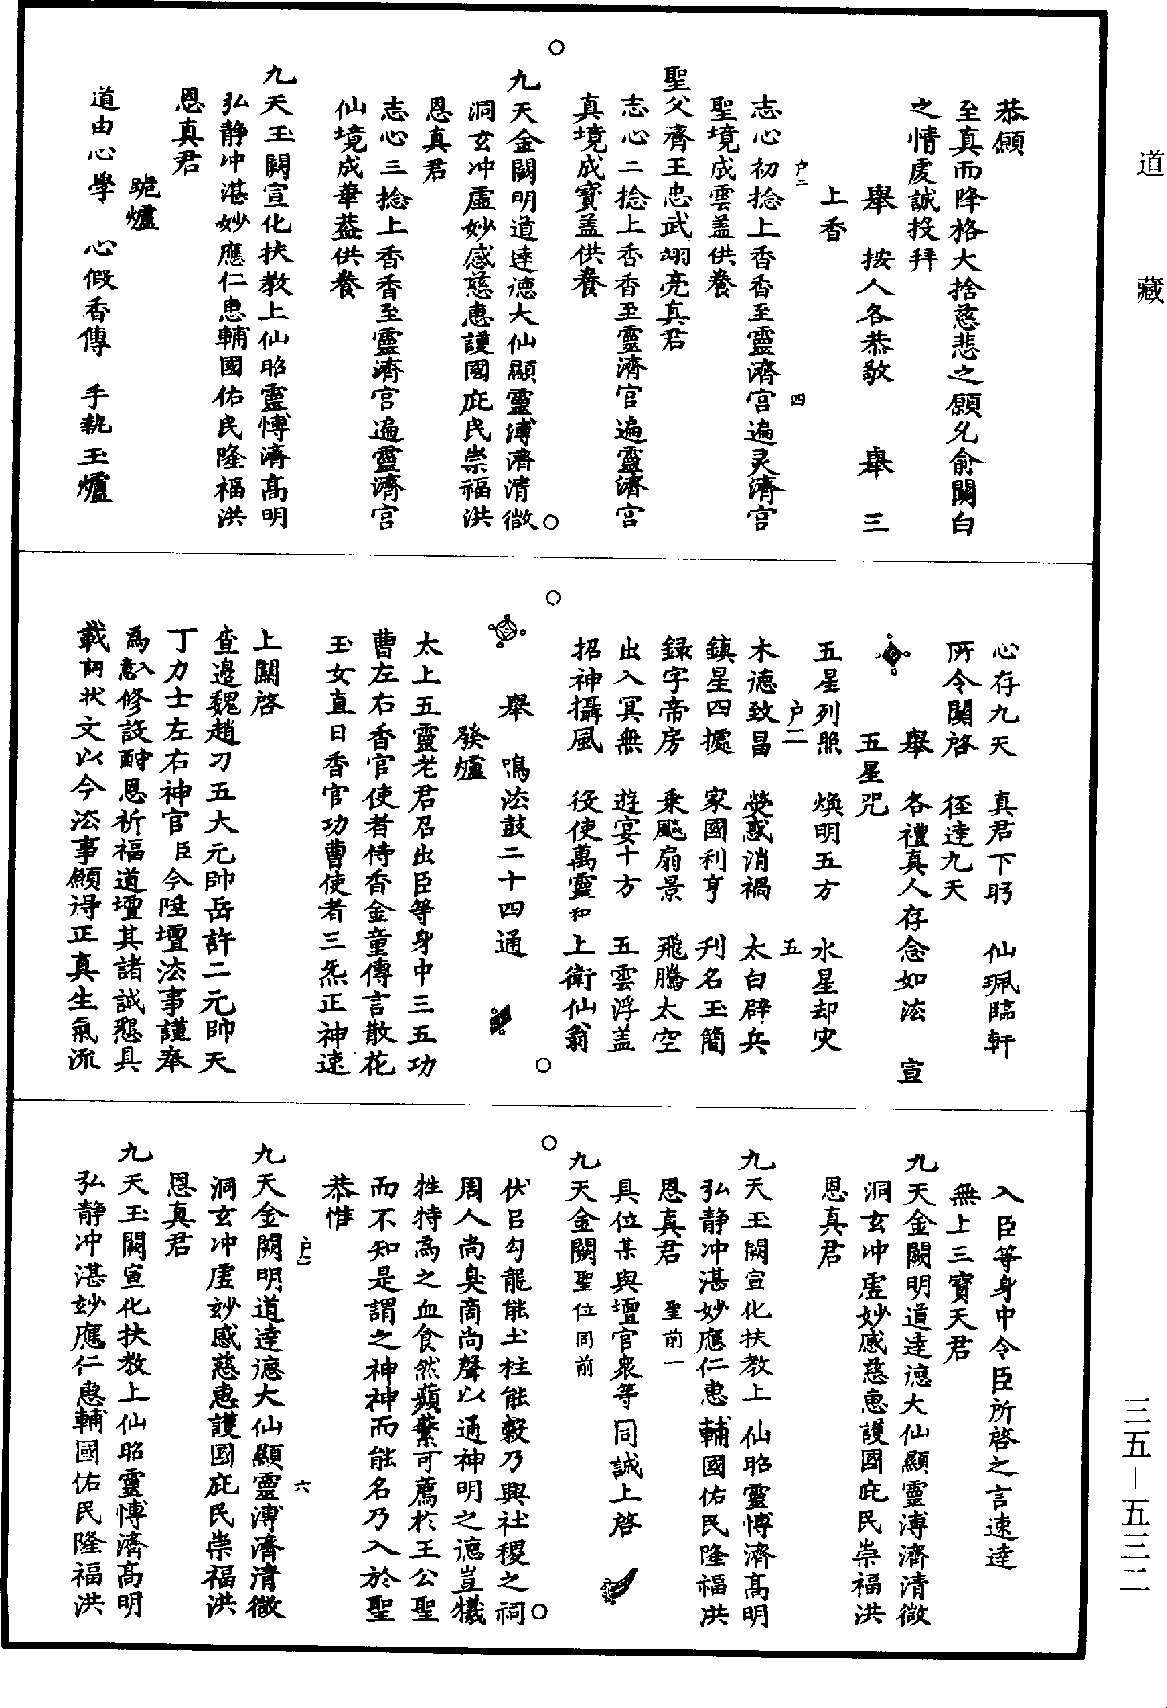 道藏
恭願
至真而降格大捨慈悲之願允俞關白
之情虔誠投拜
舉　按人各恭敬　舉　三
上香
户二　四
志心初捻上香香至靈濟宫遍灵濟宫
聖境成雲盖供養
聖父齊王忠武翊亮真君
志心二捻上香香至靈濟宫遍靈濟宫
真境成寳盖供養
九天金闕明道達德大仙顯靈溥濟清微
洞玄冲虚妙感慈惠護國庇民崇福洪
恩真君
志心三捻上香香至靈濟宫遍靈濟宫
仙境成華葢供養
九天玉闕宣化扶教上仙昭靈博濟高明
弘静冲湛妙應仁惠輔國佑民隆福洪
恩真君
跪爐
道由心學　心假香傳　手執玉爐
心存九天　真君下盻　仙珮臨軒
所令關啓　徑達九天
舉　各禮真人存念如法　宣
五星咒
五星列照　煥明五方　水星却灾
户二　五
木德致昌　熒惑消禍　太白辟兵
鎮星四據　家國利亨　刋名玉簡
録字帝房　乘飈扇景　飛騰太空
出入冥無　遊宴十方　五雲浮盖
招神攝風　役使萬靈和　上衛仙翁
舉　鳴法鼓二十四通
發爐
太上五靈老君召出臣等身中三五功
曹左右香官使者侍香金童傳言散花
玉女直日香官功曹使者三炁正神速
上關啓
查邊魏趙刀五大元帥岳許二元帥天
丁力士左右神官臣今陞壇法事謹奉
爲入意修設酧恩祈福道壇其諸誠懇具
載詞狀文以今法事願得正真生氣流
入臣等身中令臣所啓之言速達
無上三寳天君
九天金闕明道達德大仙顯靈溥濟清微
洞玄冲虚妙感慈惠護國庇民崇福洪
恩真君
九天玉闕宣化扶教上仙昭靈博濟高明
弘静冲湛妙應仁惠輔國佑民隆福洪
恩真君　聖前一
具位某與壇官衆等同誠上啓
九天金闕聖位同前
伏吕勾龍能土柱能榖乃興社稷之祠
周人尚臭商尚聲以通神明之德豈犧
牲特爲之血食然蘋蘩可薦扵王公聖
而不知是謂之神神而能名乃入於聖
恭惟
户二　六
九天金闕明道達德大仙顯靈溥濟清微
洞玄冲虚妙感慈惠護國庇民崇福洪
恩真君
九天玉闕宣化扶教上仙昭靈博濟高明
弘静冲湛妙應仁惠輔國佑民隆福洪
三五—五三二